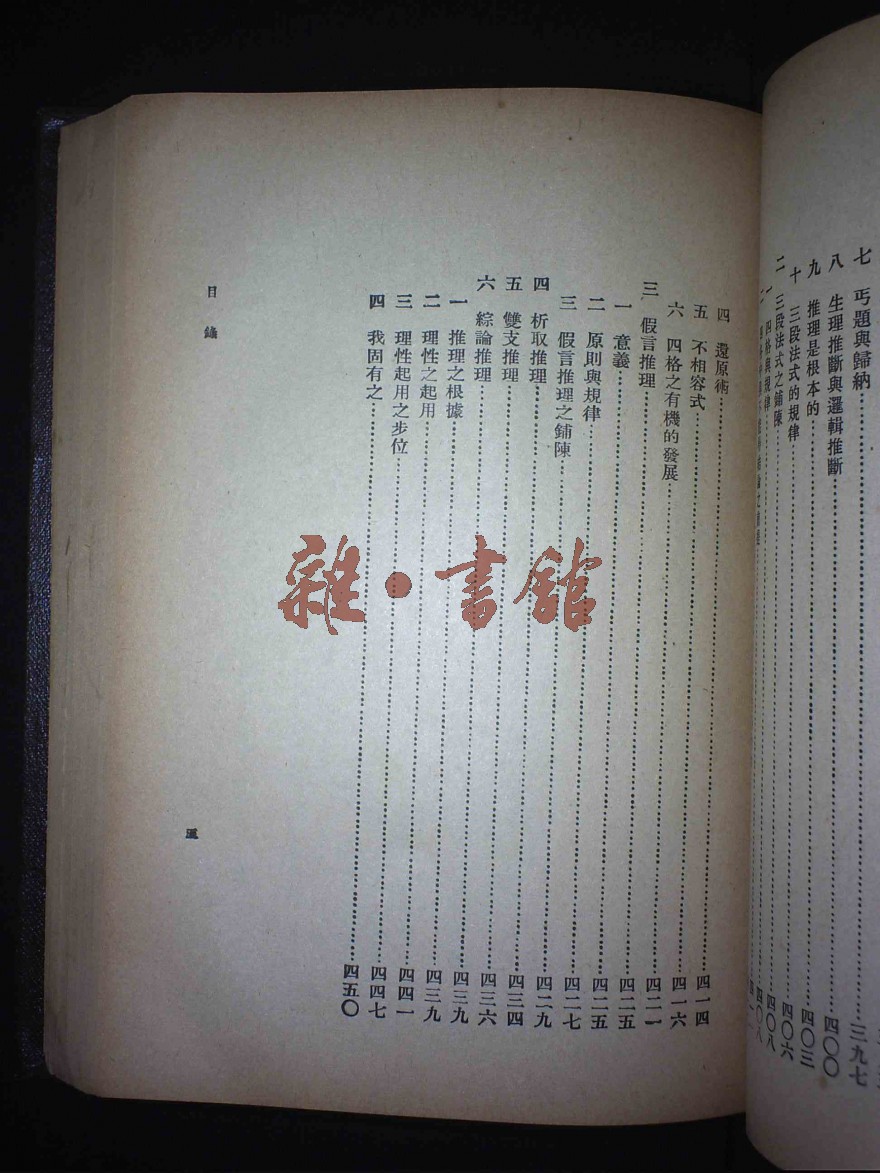 七 丐題與歸納……三九七
八 生理推斷與邏輯推斷……四〇〇
九 推理是根本的……四〇三
十 三段法式的規律……四〇六
二 三段法式之鋪陳……四〇八
一 四格與規律……四〇八
四 還原術……四一四
五 不相容式……四一六
六 四格之有機的發展……四二一
三 假言推理……四二五
一 意義……四二五
二 原則與規律……四二七
三 假言推理之鋪陳……四二九
四 析取推理……四三四
五 雙支推理……四三六
六 綜論推理……四三九
一 推理之根據……四三九
二 理性之起用……四四一
三 理性起用之步位……四四七
四 我固有之……四五〇
目錄
五
雜·書館